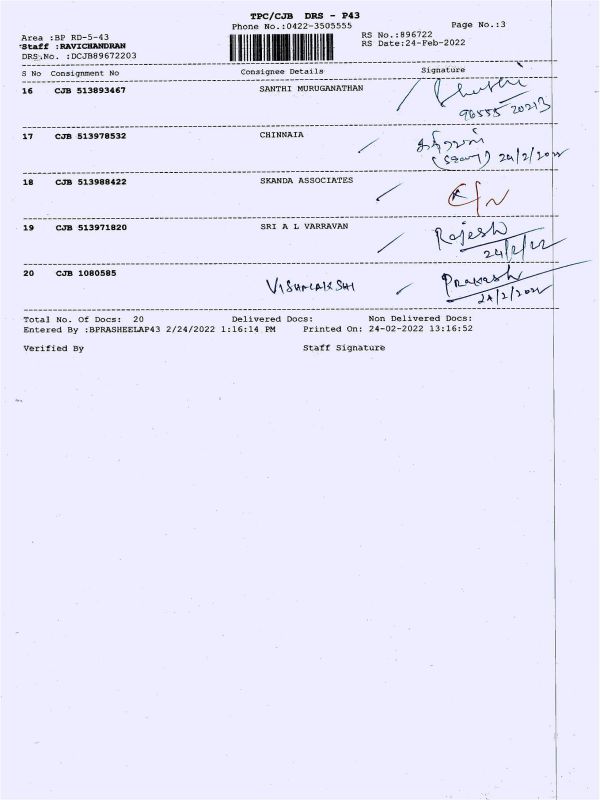 TPC/CJB DRS - P43
Phone No.:0422-3505555 Page No.:3
Area :BP RD-5-43 RS No.:896722
Staff :RAVICHANDRAN RS Date:24-Feb-2022
DRS.No. :DCJB89672203
S No Consignment No Consignee Details Signature
16 CJB 513893467 SANTHI MURUGANATHAN
96555 20213
17 CJB 513978532 CHINNAIA
24/2/2022
18 CJB 513988422 SKANDA ASSOCIATES
19 CJB 513971820 SRI A L VARRAVAN Rajesh
24/2/22
20 CJB 1080585 VISHALAKSHI Prakash
24/2/2022
Total No. Of Docs: 20 Delivered Docs: Non Delivered Docs:
Entered By :BPRASHEELAP43 2/24/2022 1:16:14 PM Printed On: 24-02-2022 13:16:52
Verified By Staff Signature